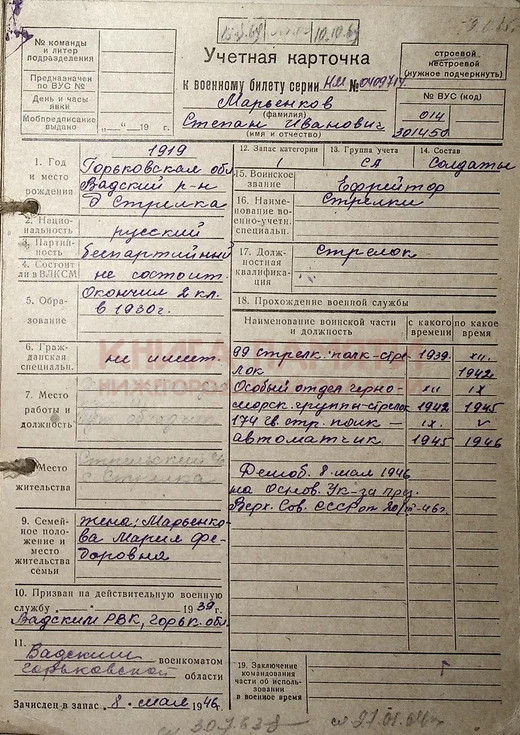 10.10.69
№ команды
и литер
подразделения
Предназначен
по ВУС №
День и часы
явки
Мобпредписание
выдано „ — " 19 г.
Учетная карточка
к военному билету серии НИ № 0409717
Марьенков
(фамилия)
Степан Иванович
(имя и отчество)
строевой
нестроевой
(нужное подчеркнуть)
№ ВУС (код)
014
301450
1. Год
и место
рождения
1919
Горьковская обл
Вадский р-н
д Стрелка
2. Нацио-
нальность
русский
3. Партий-
ность
беспартийный
4. Состоит
ли в ВЛКСМ
не состоит.
5. Обра-
зование
Окончил 2 кл.
в 1930г.
6. Граж-
данская
специальн.
не имеет.
7. Место
работы и
должность
Место
жительства
с Стрелка
9. Семей-
ное поло-
жение и
место
жительства
семьи
жена; Марьенко-
ва Мария Фе-
доровна
10. Призван на действительную военную
службу 1939 г.
Вадским РВК, Горьк. обл.
11.
Вадским военкоматом
Горьковской области
Зачислен в запас „ 8 " мая 1946 г.
12. Запас категории
1
13. Группа учета
СА
14. Состав
Солдаты
15. Воинское
звание
Ефрейтор
16. Наиме-
нование во-
енно-учетн.
специальн.
Стрелки
17. Долж-
ностная
квалифика-
ция
Стрелок
18. Прохождение военной службы
Наименование воинской части
и должность
с какого
времени
по какое
время
99 стрелк. полк - стре- 1939 XII.
лок 1942
Особый отдел черно- XII IX
морск. группы - стрелок 1942 1945
174 гв. стр. полк - IX. V
автоматчик. 1945 1946
Демоб. 8 мая 1946
на основ. Ук-за през.
Верх. Сов. СССР от 20/III-46г.
19. Заключение
командования
части об исполь-
зовании
в военное время
КНИГА ПАМЯТИ
НИЖЕГОРОДСКОЙ